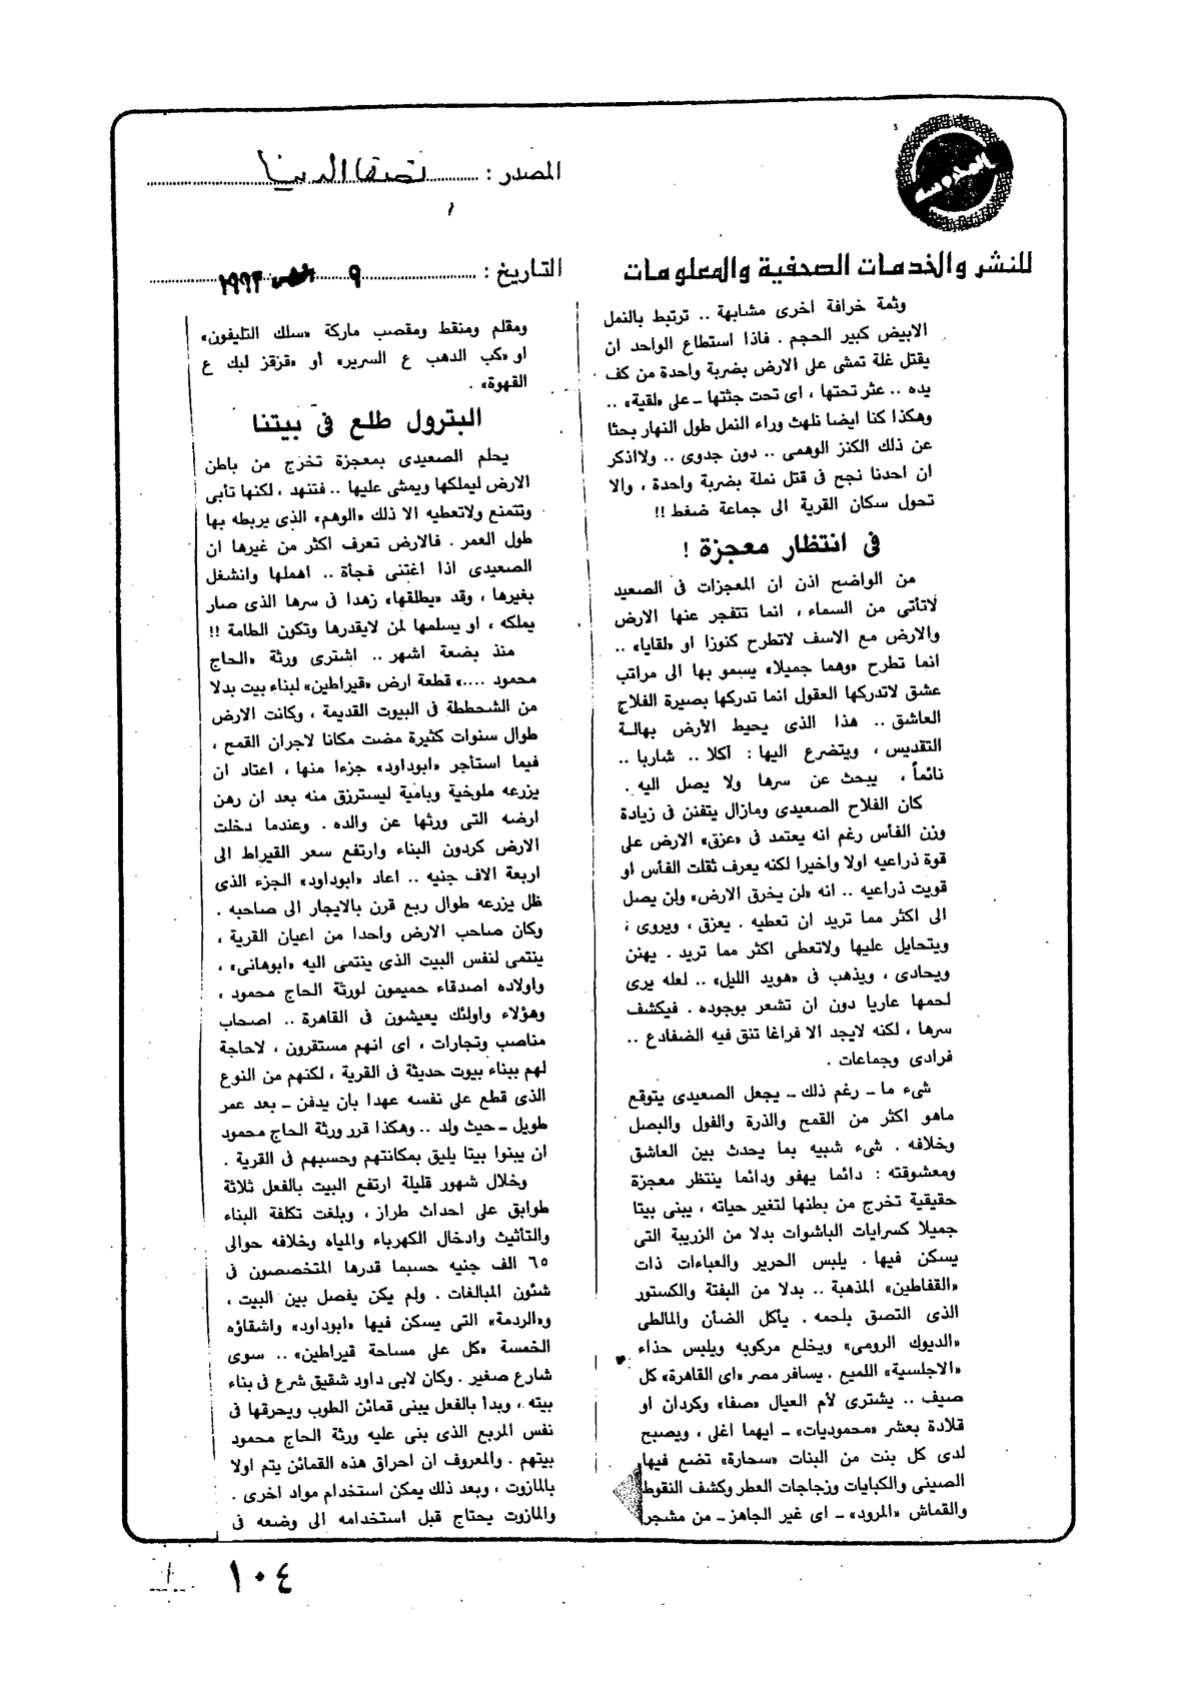 المصدر : نصف الدنيا
للنشر والخدمات الصحفية والمعلومات
التاريخ : ٩ ١٩٩٣
وثمة خرافة أخرى مشابهة .. ترتبط بالنمل
الابيض كبير الحجم . فاذا استطاع الواحد ان
يقتل غلة تمشى على الارض بضربة واحدة من كف
يده .. عثر تحتها ، اى تحت جثتها ـ على «لقية» ..
وهكذا كنا ايضا نلهث وراء النمل طول النهار بحثا
عن ذلك الكنز الوهمى .. دون جدوى .. ولااذكر
ان احدنا نجح فى قتل نملة بضربة واحدة ، والا
تحول سكان القرية الى جماعة ضغط !!
فى انتظار معجزة !
من الواضح اذن ان المعجزات فى الصعيد
لاتأتى من السماء ، انما تتفجر عنها الارض
والارض مع الاسف لاتطرح كنوزا او «لقايا» ..
انما تطرح «وهما جميلا» يسمو بها الى مراتب
عشق لاتدركها العقول انما تدركها بصيرة الفلاح
العاشق .. هذا الذى يحيط الأرض بهالة
التقديس ، ويتضرع اليها : آكلا .. شاربا ..
نائماً ، يبحث عن سرها ولا يصل اليه .
كان الفلاح الصعيدى ومازال يتفنن فى زيادة
وزن الفأس رغم انه يعتمد فى «عزق» الارض على
قوة ذراعيه اولا واخيرا لكنه يعرف ثقلت الفأس او
قويت ذراعيه .. انه «لن يخرق الارض» ولن يصل
الى اكثر مما تريد ان تعطيه . يعزق ، ويروى ،
ويتحايل عليها ولاتعطى اكثر مما تريد . يهنن
ويحادى ، ويذهب فى «هويد الليل» .. لعله يرى
لحمها عاريا دون ان تشعر بوجوده . فيكشف
سرها ، لكنه لايجد الا فراغا تنق فيه الضفادع ..
فرادى وجماعات .
شىء ما ـ رغم ذلك ـ يجعل الصعيدى يتوقع
ماهو اكثر من القمح والذرة والفول والبصل
وخلافه . شىء شبيه بما يحدث بين العاشق
ومعشوقته : دائما يهفو ودائما ينتظر معجزة
حقيقية تخرج من بطنها لتغير حياته ، يبنى بيتا
جميلا كسرايات الباشوات بدلا من الزريبة التى
يسكن فيها . يلبس الحرير والعباءات ذات
«القفاطين» المذهبة .. بدلا من البفتة والكستور
الذى التصق بلحمه . يأكل الضأن والمالطى
«الديوك الرومى» ويخلع مركوبه ويلبس حذاء
«الاجلسية» اللميع . يسافر مصر «اى القاهرة» كل
صيف .. يشترى لأم العيال «صفا» وكردان او
قلادة بعشر «محموديات» ـ ايهما اغلى ، ويصبح
لدى كل بنت من البنات «سحارة» تضع فيها
الصينى والكبايات وزجاجات العطر وكشف النقوط
والقماش «المرود» ـ اى غير الجاهز ـ من مشجر
ومقلم ومنقط ومقصب ماركة «سلك التليفون»
او «كب الدهب ع السرير» أو «قزقز لبك ع
القهوة» .
البترول طلع فى بيتنا
يحلم الصعيدى بمعجزة تخرج من باطن
الارض ليملكها ويمشى عليها .. فتنهد ، لكنها تأبى
وتتمنع ولاتعطيه الا ذلك «الوهم» الذى يربطه بها
طول العمر . فالارض تعرف اكثر من غيرها ان
الصعيدى اذا اغتنى فجأة .. اهملها وانشغل
بغيرها ، وقد «يطلقها» زهدا فى سرها الذى صار
يملكه ، او يسلمها لمن لايقدرها وتكون الطامة !!
منذ بضعة اشهر .. اشترى ورثة «الحاج
محمود ....» قطعة ارض «قيراطين» لبناء بيت بدلا
من الشحططة فى البيوت القديمة ، وكانت الارض
طوال سنوات كثيرة مضت مكانا لاجران القمح ،
فيما استأجر «ابوداود» جزءا منها ، اعتاد ان
يزرعه ملوخية وبامية ليسترزق منه بعد ان رهن
ارضه التى ورثها عن والده . وعندما دخلت
الارض كردون البناء وارتفع سعر القيراط الى
اربعة الاف جنيه .. اعاد «ابوداود» الجزء الذى
ظل يزرعه طوال ربع قرن بالايجار الى صاحبه .
وكان صاحب الارض واحدا من اعيان القرية ،
ينتمى لنفس البيت الذى ينتمى اليه «ابوهانى» ،
واولاده اصدقاء حميمون لورثة الحاج محمود ،
وهؤلاء واولئك يعيشون فى القاهرة .. اصحاب
مناصب وتجارات ، اى انهم مستقرون ، لاحاجة
لهم ببناء بيوت حديثة فى القرية ، لكنهم من النوع
الذى قطع على نفسه عهدا بان يدفن ـ بعد عمر
طويل ـ حيث ولد .. وهكذا قرر ورثة الحاج محمود
ان يبنوا بيتا يليق بمكانتهم وحسبهم فى القرية .
وخلال شهور قليلة ارتفع البيت بالفعل ثلاثة
طوابق على احداث طراز ، وبلغت تكلفة البناء
والتأثيث وادخال الكهرباء والمياه وخلافه حوالى
٦٥ الف جنيه حسبما قدرها المتخصصون فى
شئون المبالغات . ولم يكن يفصل بين البيت ،
و«الردمة» التى يسكن فيها «ابوداود» واشقاؤه
الخمسة «كل على مساحة قيراطين» .. سوى
شارع صغير . وكان لابى داود شقيق شرع فى بناء
بيته ، وبدأ بالفعل يبنى قمائن الطوب ويحرقها فى
نفس المربع الذى بنى عليه ورثة الحاج محمود
بيتهم . والمعروف ان احراق هذه القمائن يتم اولا
بالمازوت ، وبعد ذلك يمكن استخدام مواد اخرى .
والمازوت يحتاج قبل استخدامه الى وضعه فى
١٠٤